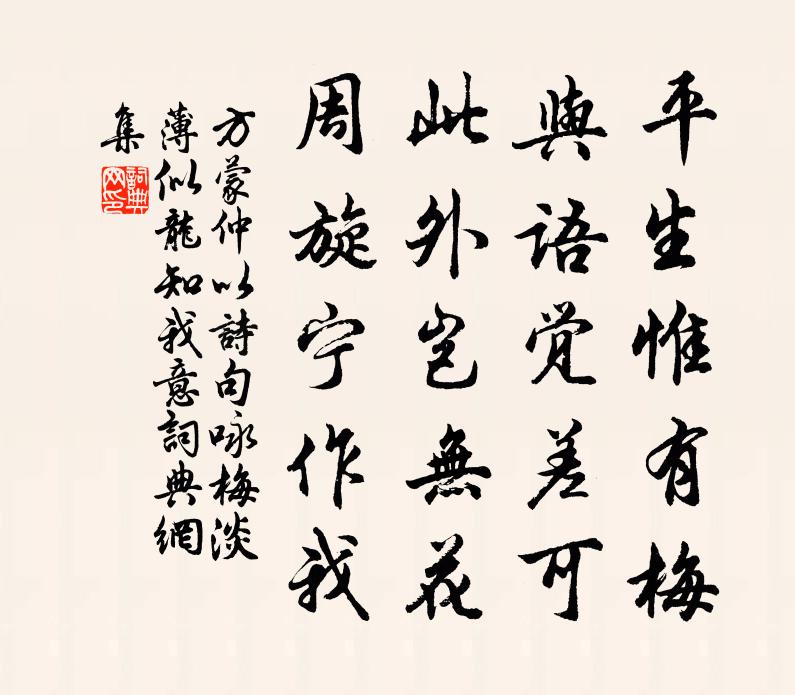 平生惟有梅
與語覺差可
此外岂無花
周旋宁作我
方蒙仲以詩句咏梅淡
薄似龍知我意詞典網
集
詞典网印